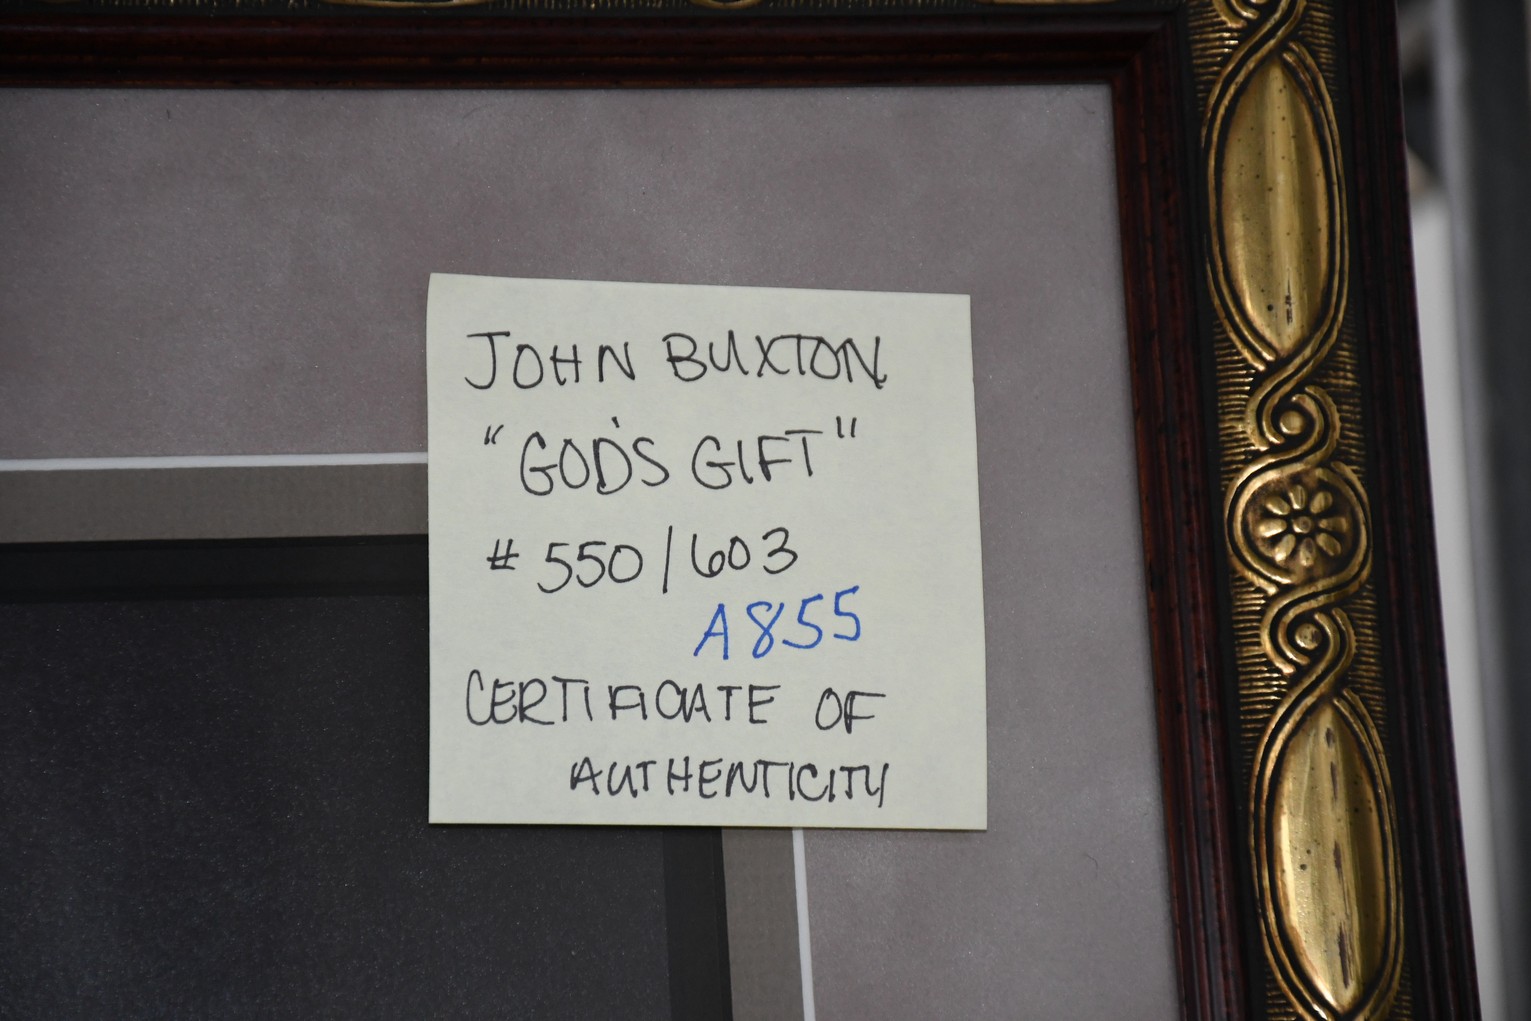 JOHN BUXTON
"GOD'S GIFT"
# 550/603
A855
CERTIFICATE OF
AUTHENTICITY